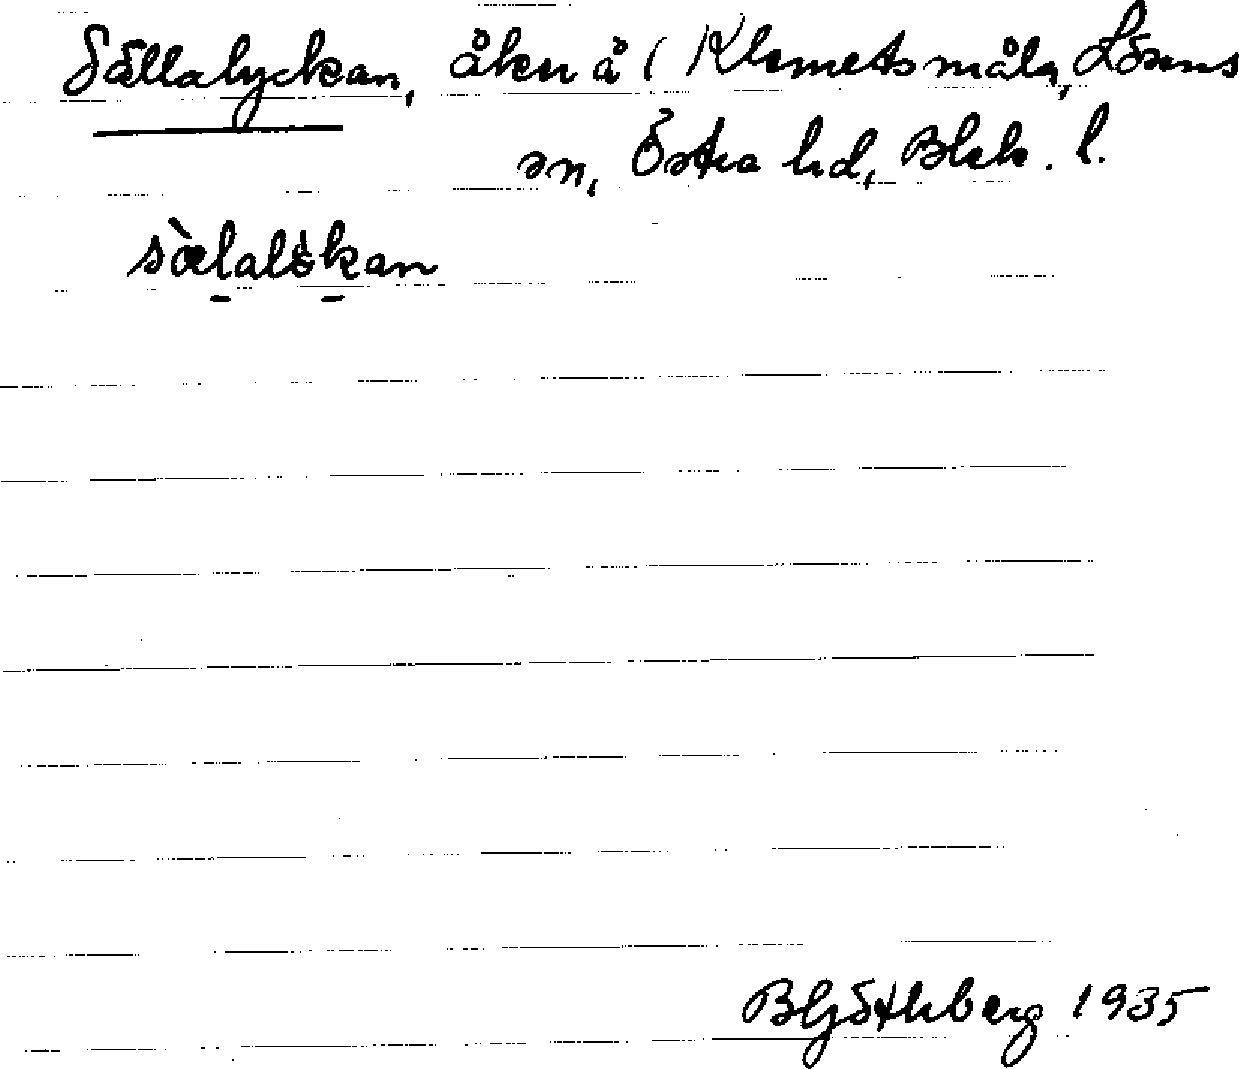 Sällalyckan, åker å (Klemetsmåla, Lösens
sn, Östra hd, Blek. l.
sæ̀lalökan
BGötherberg 1935